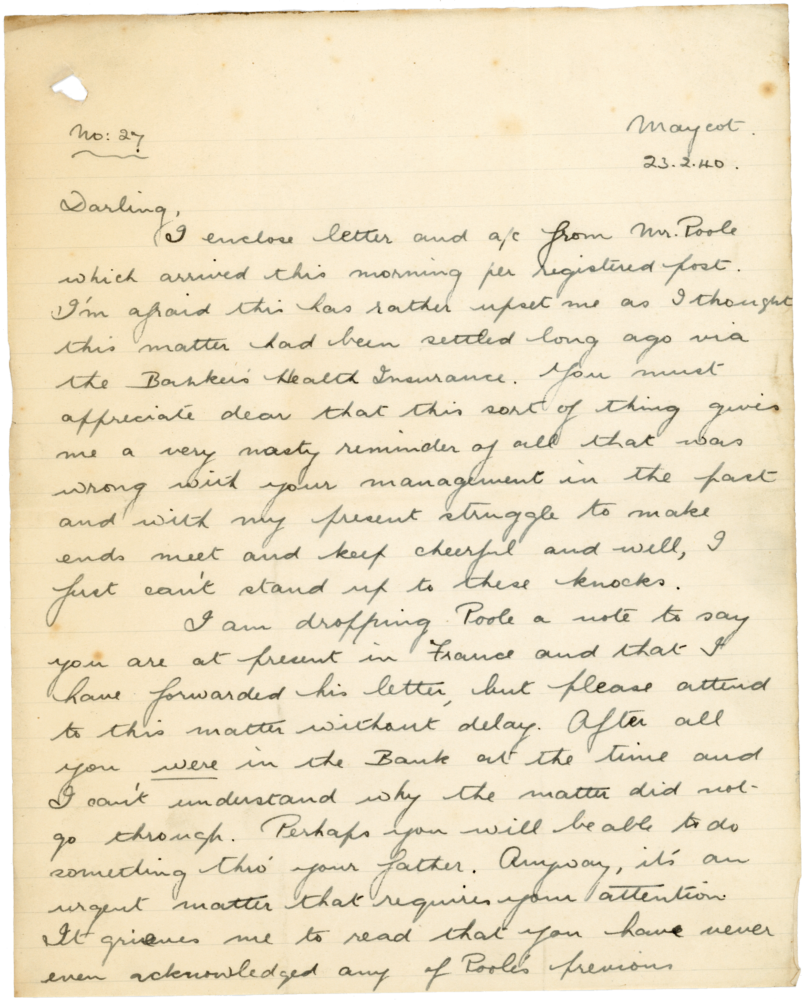 No: 27
Maycot.
23.2.40.
Darling,
I enclose letter and a/c from Mr. Poole
which arrived this morning per registered post.
I'm afraid this has rather upset me as I thought
this matter had been settled long ago via
the Bankers Health Insurance. You must
appreciate dear that this sort of thing gives
me a very nasty reminder of all that was
wrong with your management in the past
and with my present struggle to make
ends meet and keep cheerful and well, I
just can't stand up to these knocks.
I am dropping Poole a note to say
you are at present in France and that I
have forwarded his letter, but please attend
to this matter without delay. After all
you were in the Bank at the time and
I can't understand why the matter did not
go through. Perhaps you will be able to do
something thro' your father. Anyway, it's an
urgent matter that requires your attention
It grieves me to read that you have never
even acknowledged any of Poole's previous